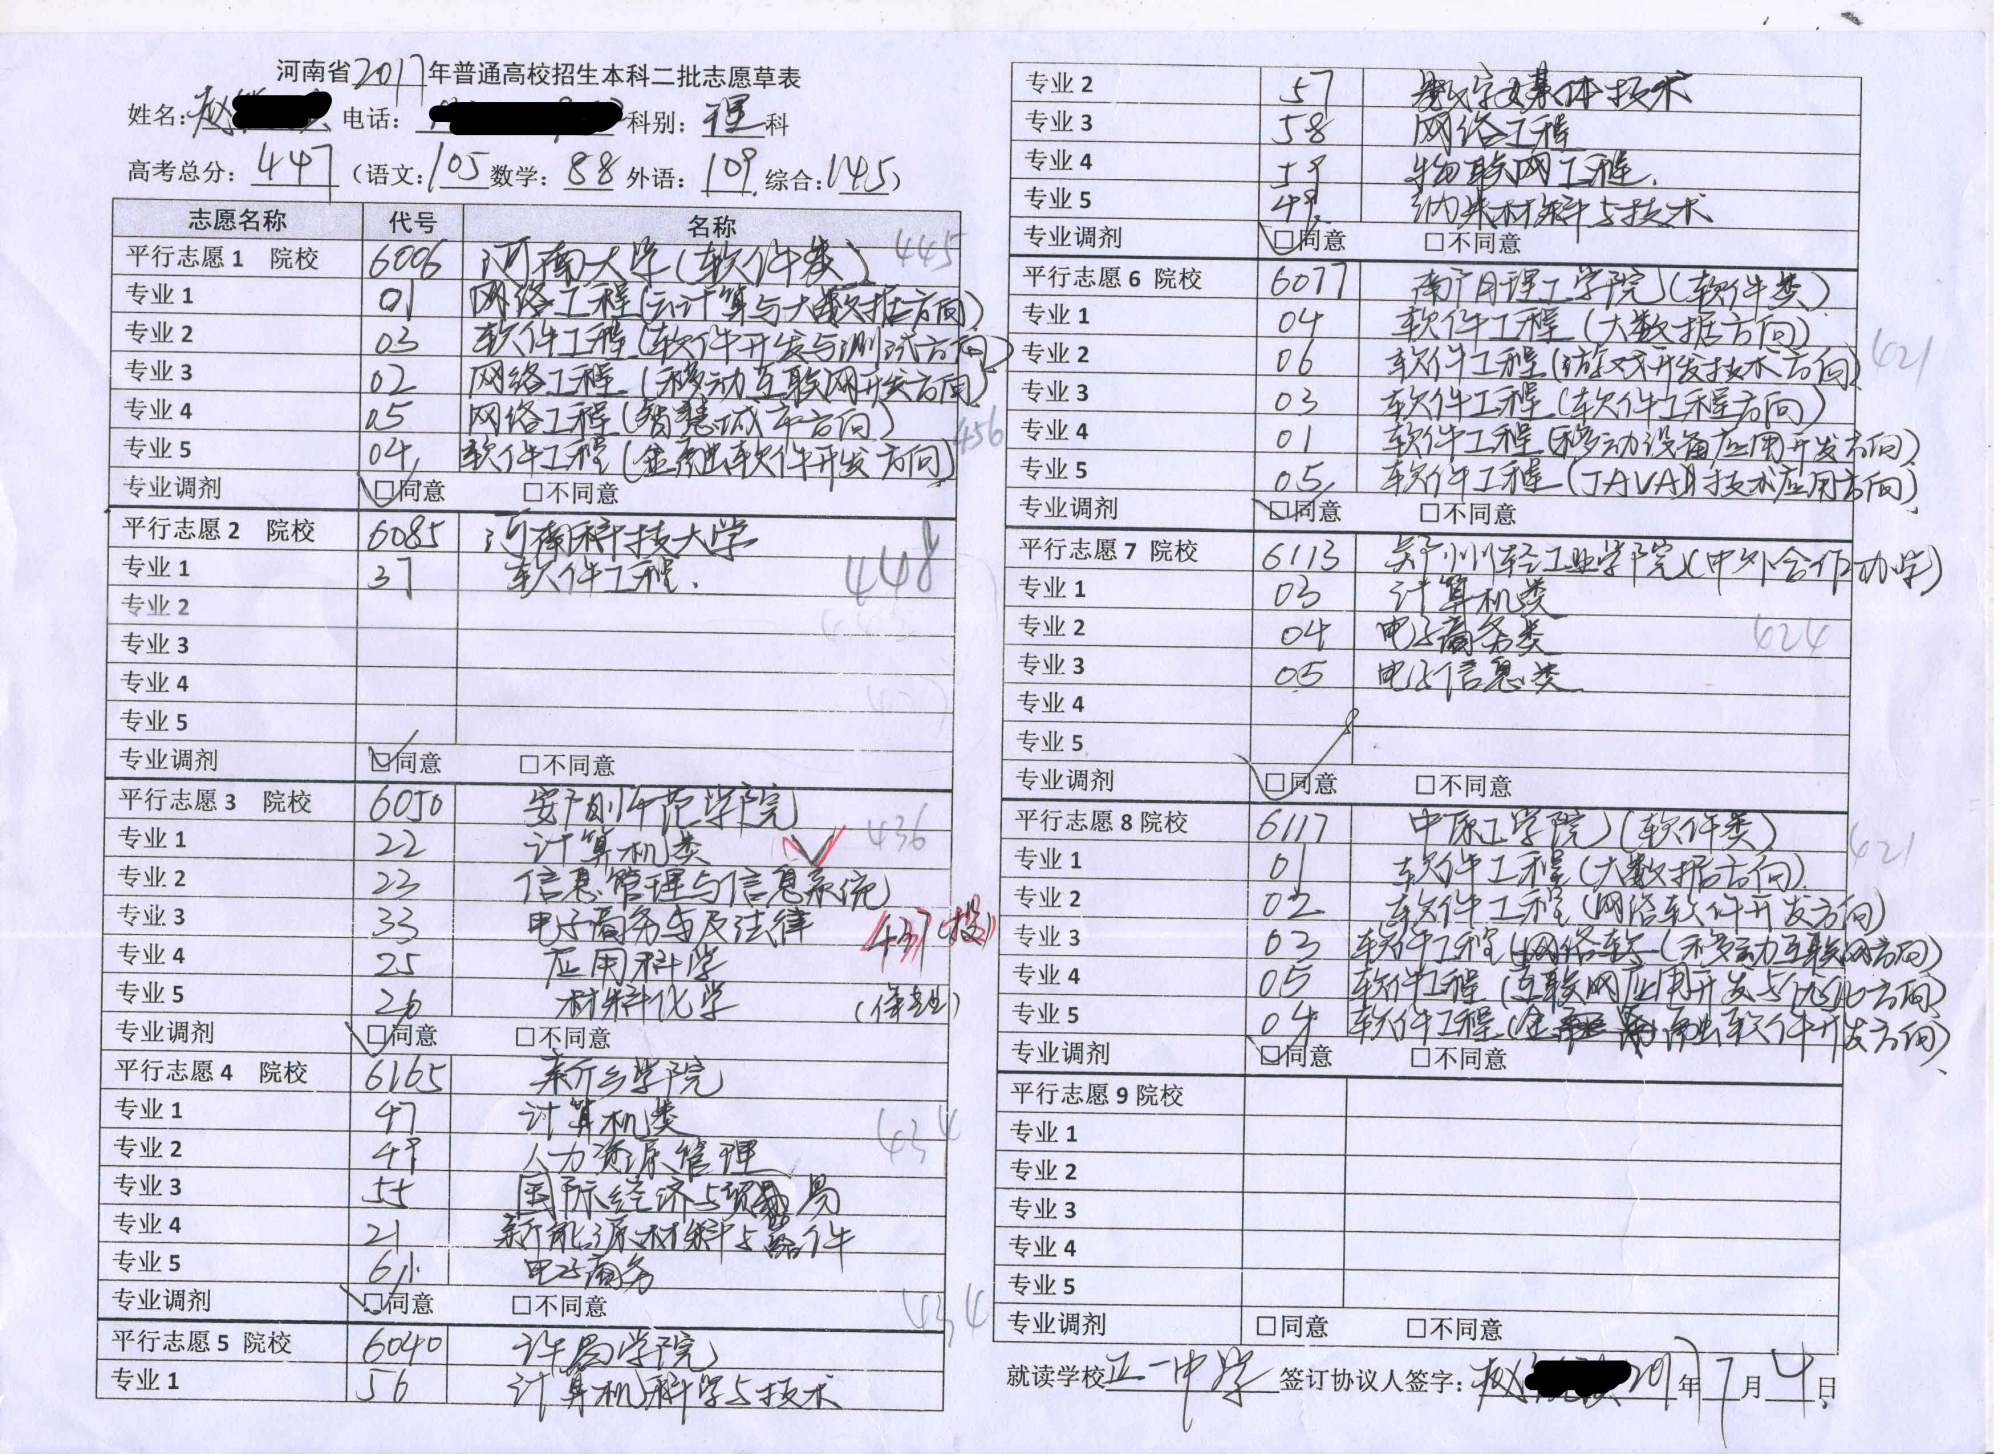 河南省2017年普通高校招生本科二批志愿草表
姓名:赵 电话: 科别:理科
高考总分:447(语文:105 数学:88 外语:109 综合:145)
志愿名称 代号 名称
平行志愿1 院校 6006 河南大学(软件类) 445
专业1 01 网络工程(云计算与大数据方向)
专业2 03 软件工程(软件开发与测试方向)
专业3 02 网络工程(移动互联网开发方向)
专业4 05 网络工程(智慧城市方向) 456
专业5 04 软件工程(金融业软件开发方向)
专业调剂 □同意 □不同意
平行志愿2 院校 6085 河南科技大学
专业1 37 软件工程. 448
专业2
专业3
专业4
专业5
专业调剂 □同意 □不同意
平行志愿3 院校 6050 安阳师范学院
专业1 22 计算机类 436
专业2 23 信息管理与信息系统
专业3 33 电子商务及法律 437(投)
专业4 25 应用科学
专业5 26 材料化学
专业调剂 □同意 □不同意
平行志愿4 院校 6165 新乡学院
专业1 47 计算机类 434
专业2 49 人力资源管理
专业3 55 国际经济与贸易
专业4 21 新能源材料与器件
专业5 61 电子商务
专业调剂 □同意 □不同意 434
平行志愿5 院校 6040 许昌学院
专业1 56 计算机科学与技术
专业2 57 数字媒体技术
专业3 58 网络工程
专业4 59 物联网工程.
专业5 49 纳米材料与技术
专业调剂 □同意 □不同意
平行志愿6 院校 6077 南阳理工学院(软件类)
专业1 04 软件工程(大数据方向)
专业2 06 软件工程(游戏开发技术方向) 421
专业3 03 软件工程(软件工程方向)
专业4 01 软件工程(移动设备应用开发方向)
专业5 05 软件工程(JAVA技术应用方向)
专业调剂 □同意 □不同意
平行志愿7 院校 6113 郑州轻工业学院(中外合作办学)
专业1 03 计算机类
专业2 04 电子商务类 424
专业3 05 电子信息类
专业4
专业5
专业调剂 □同意 □不同意
平行志愿8院校 6117 中原工学院(软件类)
专业1 01 软件工程(大数据方向) 421
专业2 02 软件工程(网络软件开发方向)
专业3 03 软件工程(移动互联网方向)
专业4 05 软件工程(互联网应用开发与优化方向)
专业5 04 软件工程(金融业软件开发方向)
专业调剂 □同意 □不同意
平行志愿9院校
专业1
专业2
专业3
专业4
专业5
专业调剂 □同意 □不同意
就读学校 正一中学 签订协议人签字:赵 2017年7月4日